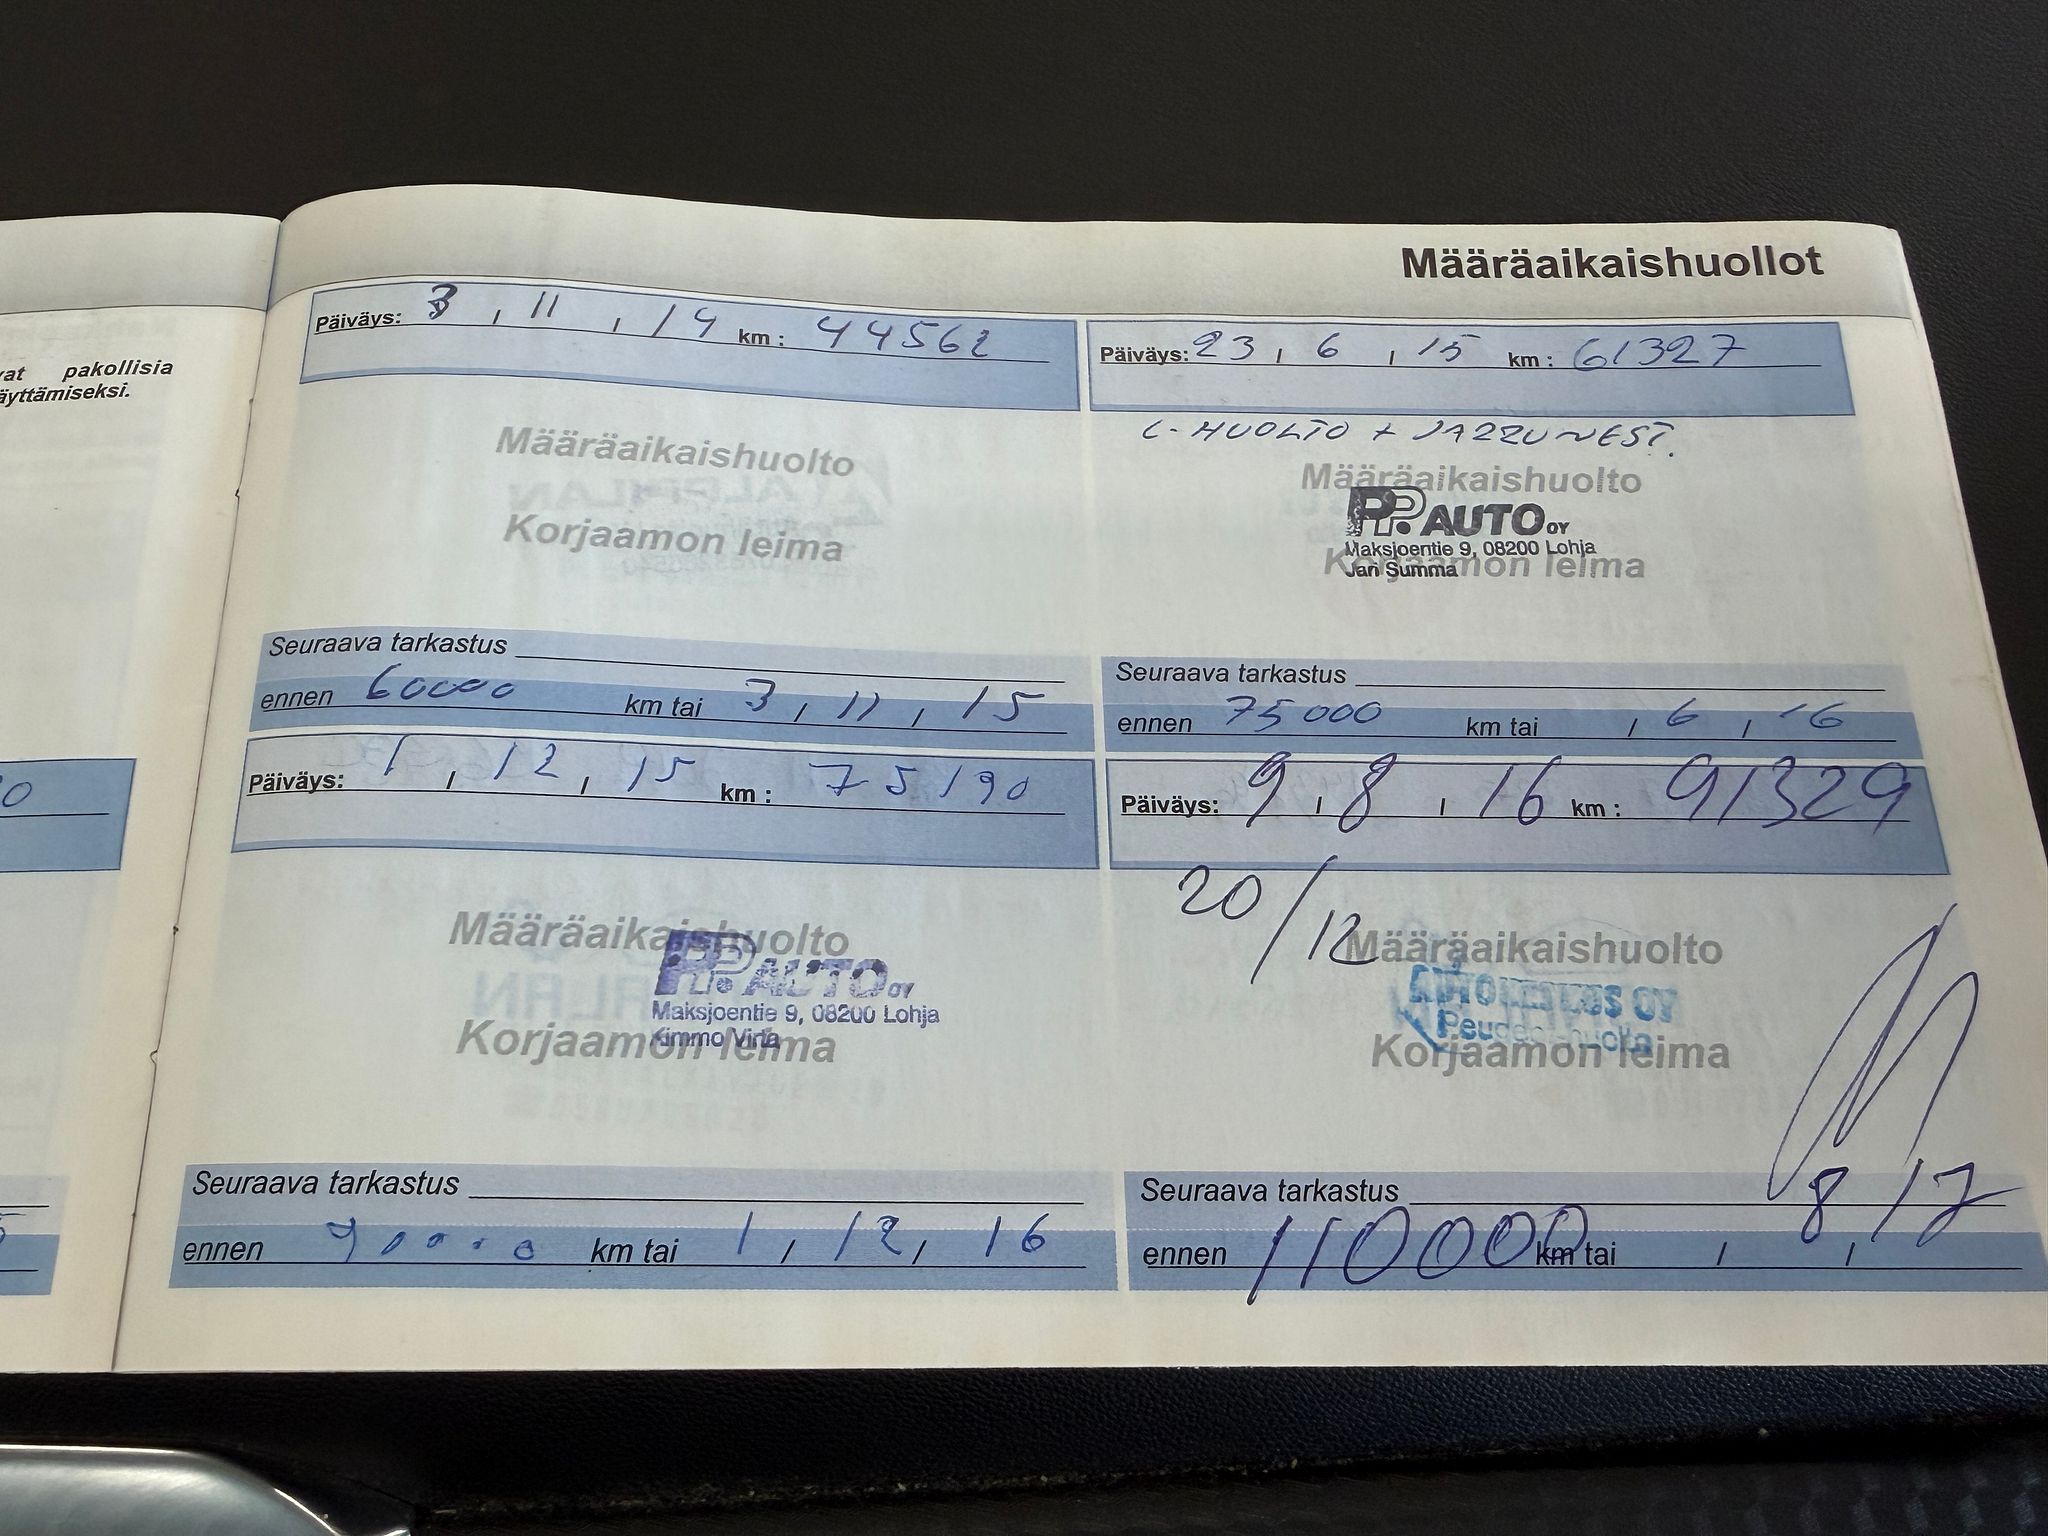 Määräaikaishuollot
vat pakollisia
äyttämiseksi.
Päiväys: 3 , 11 , 14 km : 44562
Määräaikaishuolto
Korjaamon leima
Seuraava tarkastus
ennen 60000 km tai 3 , 11 , 15
Päiväys: 23 , 6 , 15 km : 61327
L-HUOLTO + JAZZUNEST.
Määräaikaishuolto
PP. AUTO OY
Maksjoentie 9, 08200 Lohja
Jari Summa
Korjaamon leima
Seuraava tarkastus
ennen 75000 km tai , 6 , -16
Päiväys: 1 , 12 , 15 km : 75190
Määräaikaishuolto
PP. AUTO OY
Maksjoentie 9, 08200 Lohja
Kimmo Virta
Korjaamon leima
Seuraava tarkastus
ennen 90000 km tai 1 , 12 , 16
Päiväys: 9 , 8 , 16 km : 91329
20/12
Määräaikaishuolto
OY
Korjaamon leima
Seuraava tarkastus
ennen 110000 km tai , 8 , 17